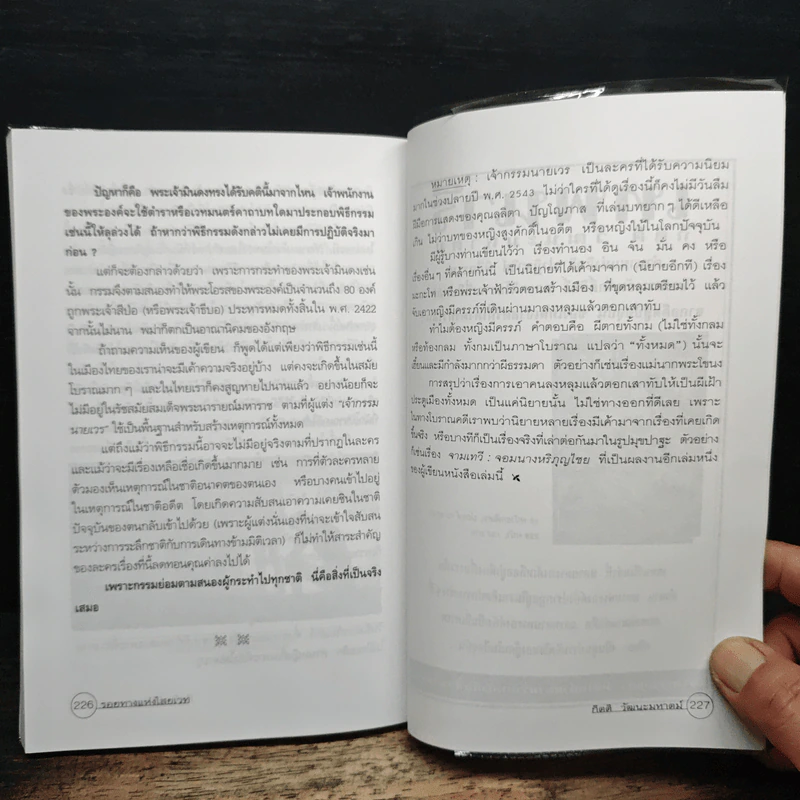 ปัญหาก็คือ พระเจ้ามินดงทรงได้รับคตินี้มาจากไหน เจ้าพนักงาน
ของพระองค์จะใช้ตำราหรือเวทมนตร์คาถาบทใดมาประกอบพิธีกรรม
เช่นนี้ให้ลุล่วงได้ ถ้าหากว่าพิธีกรรมดังกล่าวไม่เคยมีการปฏิบัติจริงมา
ก่อน ?
แต่ก็จะต้องกล่าวด้วยว่า เพราะการกระทำของพระเจ้ามินดงเช่น
นั้น กรรมจึงตามสนองทำให้พระโอรสของพระองค์เป็นจำนวนถึง 80 องค์
ถูกพระเจ้าสีปอ (หรือพระเจ้าธีบอ) ประหารหมดทั้งสิ้นใน พ.ศ. 2422
จากนั้นไม่นาน พม่าก็ตกเป็นอาณานิคมของอังกฤษ
ถ้าถามความเห็นของผู้เขียน ก็พูดได้แต่เพียงว่าพิธีกรรมเช่นนี้
ในเมืองไทยของเราน่าจะมีเค้าความจริงอยู่บ้าง แต่คงจะเกิดขึ้นในสมัย
โบราณมาก ๆ และในไทยเราก็คงสูญหายไปนานแล้ว อย่างน้อยก็จะ
ไม่มีอยู่ในรัชสมัยสมเด็จพระนารายณ์มหาราช ตามที่ผู้แต่ง "เจ้ากรรม
นายเวร" ใช้เป็นพื้นฐานสำหรับสร้างเหตุการณ์ทั้งหมด
แต่ถึงแม้ว่าพิธีกรรมนี้อาจจะไม่มีอยู่จริงตามที่ปรากฏในละคร
และแม้ว่าจะมีเรื่องเหลือเชื่อเกิดขึ้นมากมาย เช่น การที่ตัวละครหลาย
ตัวมองเห็นเหตุการณ์ในชาติอนาคตของตนเอง หรือบางคนเข้าไปอยู่
ในเหตุการณ์ในชาติอดีต โดยเกิดความสับสนเอาความเคยชินในชาติ
ปัจจุบันของตนกลับเข้าไปด้วย (เพราะผู้แต่งนั่นเองที่น่าจะเข้าใจสับสน
ระหว่างการระลึกชาติกับการเดินทางข้ามมิติเวลา) ก็ไม่ทำให้สาระสำคัญ
ของละครเรื่องนี้ลดทอนคุณค่าลงไปได้
เพราะกรรมย่อมตามสนองผู้กระทำไปทุกชาติ นี่คือสิ่งที่เป็นจริง
เสมอ
226 รอยทางแห่งไสยเวท
หมายเหตุ : เจ้ากรรมนายเวร เป็นละครที่ได้รับความนิยม
มากในช่วงปลายปี พ.ศ. 2543 ไม่ว่าใครที่ได้ดูเรื่องนี้ก็คงไม่มีวันลืม
ฝีมือการแสดงของคุณลลิตา ปัญโญภาส ที่เล่นบทยาก ๆ ได้ดีเหลือ
เกิน ไม่ว่าบทของหญิงสูงศักดิ์ในอดีต หรือหญิงใบ้ในโลกปัจจุบัน
มีผู้รู้บางท่านเขียนไว้ว่า เรื่องทำนอง อิน จัน มั่น คง หรือ
เรื่องอื่นๆ ที่คล้ายกันนี้ เป็นนิยายที่ได้เค้ามาจาก (นิยายอีกที) เรื่อง
มะกะโท หรือพระเจ้าฟ้ารั่วตอนสร้างเมือง ที่ขุดหลุมเตรียมไว้ แล้ว
จับเอาหญิงมีครรภ์ที่เดินผ่านมาลงหลุมแล้วตอกเสาทับ
ทำไมต้องหญิงมีครรภ์ คำตอบคือ ผีตายทั้งกม (ไม่ใช่ทั้งกลม
หรือท้องกลม ทั้งกมเป็นภาษาโบราณ แปลว่า "ทั้งหมด") นั้นจะ
เฮี้ยนและมีกำลังมากกว่าผีธรรมดา ตัวอย่างก็เช่นเรื่องแม่นากพระโขนง
การสรุปว่าเรื่องการเอาคนลงหลุมแล้วตอกเสาทับให้เป็นผีเฝ้า
ประตูเมืองทั้งหมด เป็นแค่นิยายนั้น ไม่ใช่ทางออกที่ดีเลย เพราะ
ในทางโบราณคดีเราพบว่านิยายหลายเรื่องมีเค้ามาจากเรื่องที่เคยเกิด
ขึ้นจริง หรือบางทีก็เป็นเรื่องจริงที่เล่าต่อกันมาในรูปมุขปาฐะ ตัวอย่าง
ก็เช่นเรื่อง จามเทวี : จอมนางหริภุญไชย ที่เป็นผลงานอีกเล่มหนึ่ง
ของผู้เขียนหนังสือเล่มนี้
กิตติ วัฒนะมหาตม์ 227